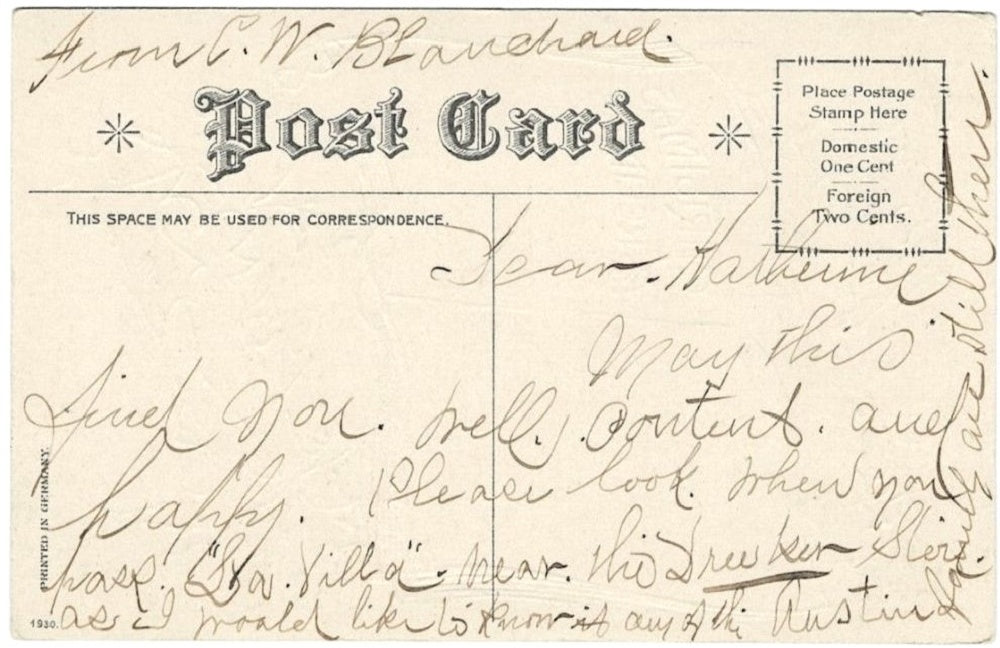 From C. W. Blanchard.
Post Card
Place Postage
Stamp Here
Domestic
One Cent
Foreign
Two Cents.
THIS SPACE MAY BE USED FOR CORRESPONDENCE.
Dear. Katherine
May this
find you. well, content. and
happy. Please look. when you
pass. "La. Villa" near. the Store.
as I would like to know if any of the Austin
family are still there.
PRINTED IN GERMANY.
1930.